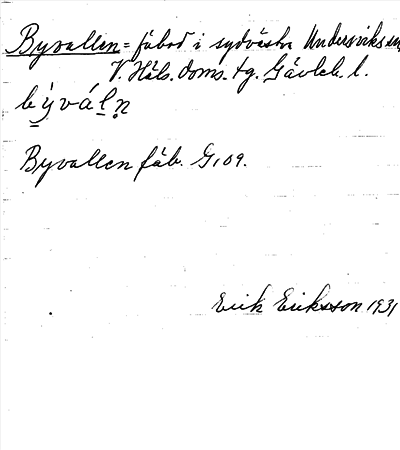 Byvallen = fäbod i sydvästra Undersviks sn,
V. Häls. doms. tg. Gävleb. l.
by̆vál̠n̥
Byvallen fäb. G109.
Erik Eriksson 1931